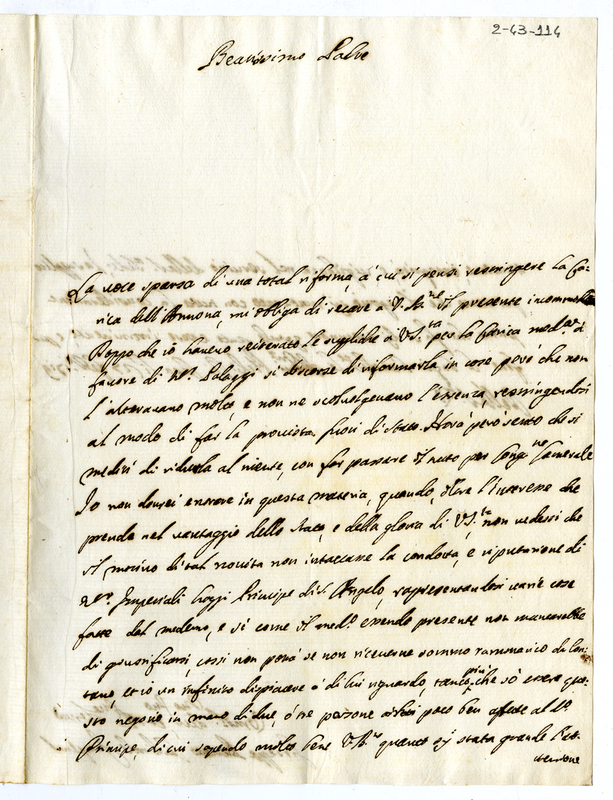 2-43-114
Beatissimo Padre
La voce sparsa di una total riforma, à cui si pensi restringere la Ca-
rica dell'Annona, mi obliga di recare à V. Bne il presente incommodo
Doppo che io havevo reiterato le suppliche à V. Sta per la Carica medma à
favore di Mr. Palaggi si discorse di riformarla in cose però che non
l'alteravano molto, e non ne scolvolgevano l'essenza, restringendosi
al modo di far la provista fuori di stato. Hora però sento che si
mediti di ridurla al niente, con far passare il tutto per Congne Camerale
Io non dovrei entrare in questa materia, quando, oltre l'interesse che
prendo nel vantaggio dello stato, e della gloria di V. Sta, non vedessi che
il motivo di tal novita non intaccasse la condotta, e riputatione di
Mr. Imperiali hoggi Principe di S. Angelo, rapresentandosi varie cose
fatte dal medemo, e si come il medo essendo presente non mancarebbe
di giustificarsi, cossi non potrà se non riceverne sommo rammarico da lon-
tano, et io un infinito dispiacere à di lui riguardo, tanto più che sò essere que-
sto negotio in mano di due, ò tre persone poco ben affette al do
Principe, di cui sapendo molto bene V. Bne quanto sij stata grande l'at-
tentione